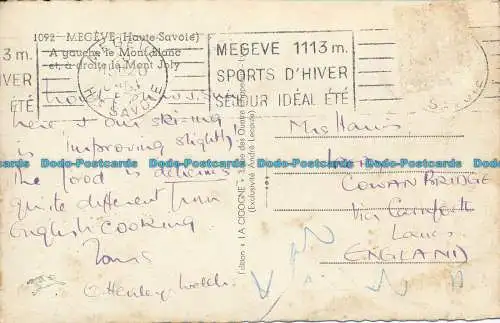 1092 - MEGÈVE (Haute-Savoie)
A gauche le Mont Blanc
et, à droite le Mont Joly
MEGEVE 1113 m.
SPORTS D'HIVER
SÉJOUR IDÉAL ÉTÉ
3 m.
HIVER
ÉTÉ
SAVOIE
here & our ski-ing
is improving slightly!
The food is delicious
quite different from
English Cooking
Édition "LA CIGOGNE"
(Exclusivité André Leconte)
Miss
COWAN BRIDGE
Via Carnforth
Lancs
ENGLAND
Dodo-Postcards Dodo-Postcards Dodo-Postcards Dodo-Postcards